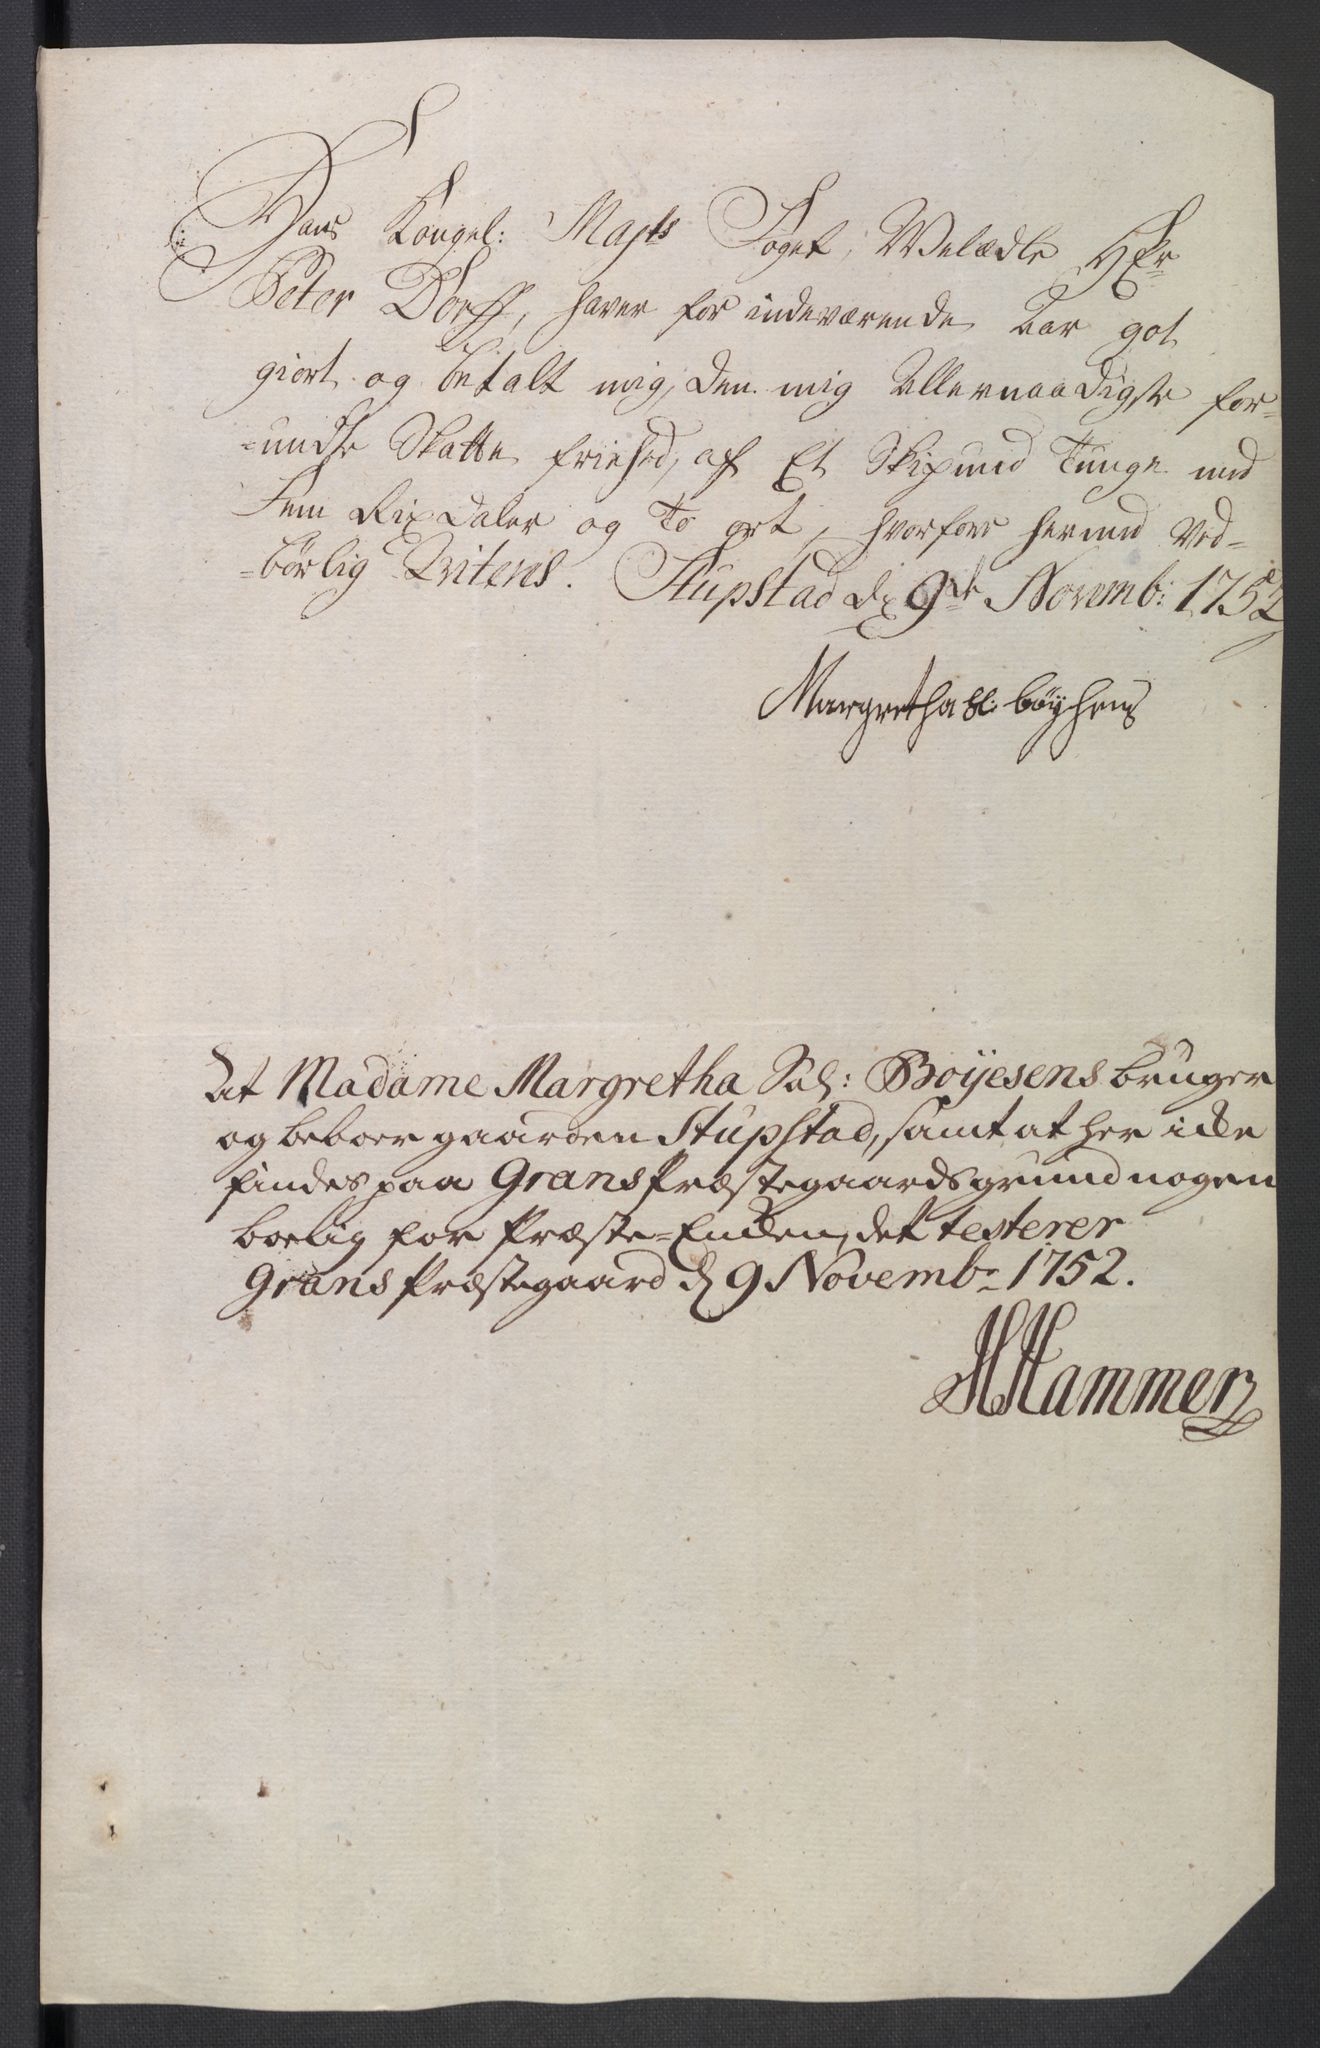 Hans Kongel: Majts Foget, Welædle HEr
Peter Dorff, haver for indeværende Aar got
giort og betalt mig, den mig Allernaadigste for-
-undte Skatte friehed, af Et Skipund Tunge med
Fem Rix Daler og To ort, hvorfore hermed Ved-
-børlig Qvitens. Stupstad d 9de Novemb: 1752
Margretha Sl: böyhens
At Madame Margretha Sal: Boÿesens bruger
og beboer gaarden Stupstad, samt at her icke
findes paa Grans Præstegaards grund nogen
boelig for Præste-Encken, det testerer
Grans Præstegaard d 9 Novembr 1752.
HHammer